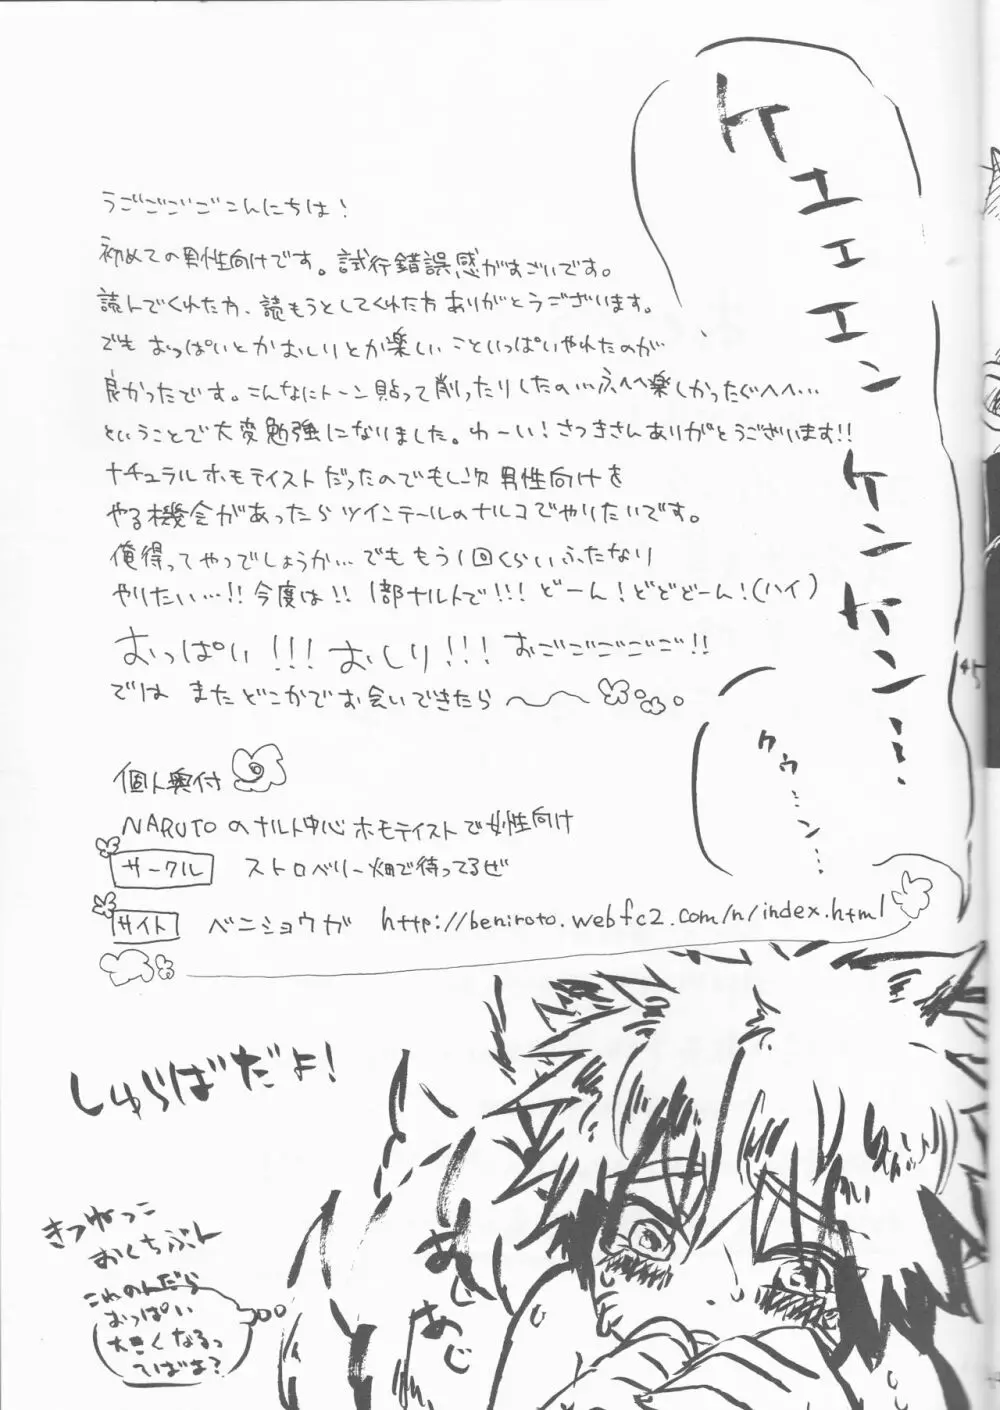 ケエエエンケンケン…
クウ…ン…
うごごごごこんにちは!
初めての男性向けです。試行錯誤感がすごいです。
読んでくれた方、読もうとしてくれた方ありがとうございます。
でも おっぱいとかおしりとか楽しいこといっぱいやれたのが
良かったです。こんなにトーン貼って削ったりしたの…ふへへ楽しかったぐへへ…
ということで大変勉強になりました。わーい!さつきさんありがとうございます!!
ナチュラルホモテイストだったのでもし次 男性向けを
やる機会があったらツインテールのナルコでやりたいです。
俺得ってやつでしょうか…でも もう1回くらいふたなり
やりたい…!!今度は!! 1部ナルトで!!! どーん!どどどーん!(ハイ)
おっぱい!!! おしり!!! おごごごごご!!
では またどこかでお会いできたら
個人奥付
NARUTOのナルト中心ホモテイストで女性向け
サークル ストロベリー畑で待ってるぜ
サイト ベニショウガ http://beniroto.webfc2.com/n/index.html
しゅらばだよ!
きつねっこ
おくちぶー
これのんだら
おっぱい
大きくなるっ
てばよ?
あじ
あじ
45